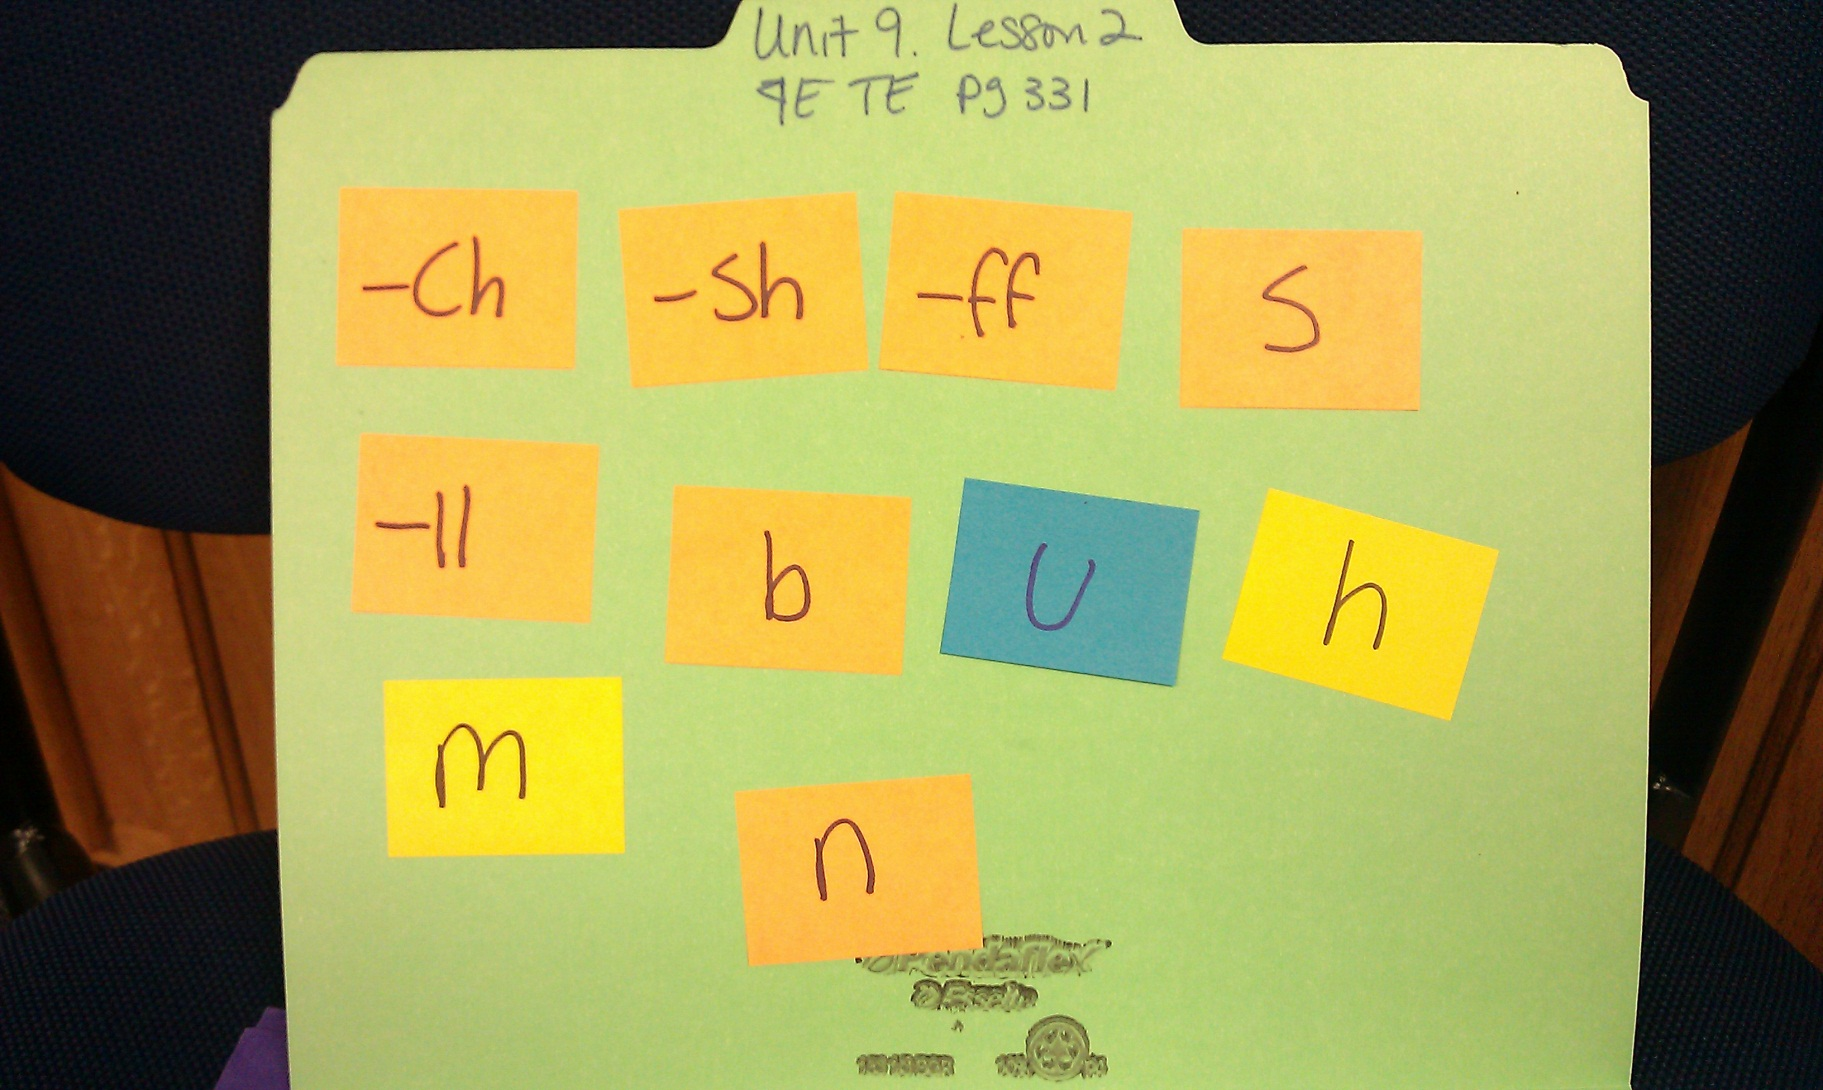 Unit 9. Lesson 2
TE pg 331
-Ch -Sh -ff S
-ll b U h
m
n
Pendaflex
Esselte